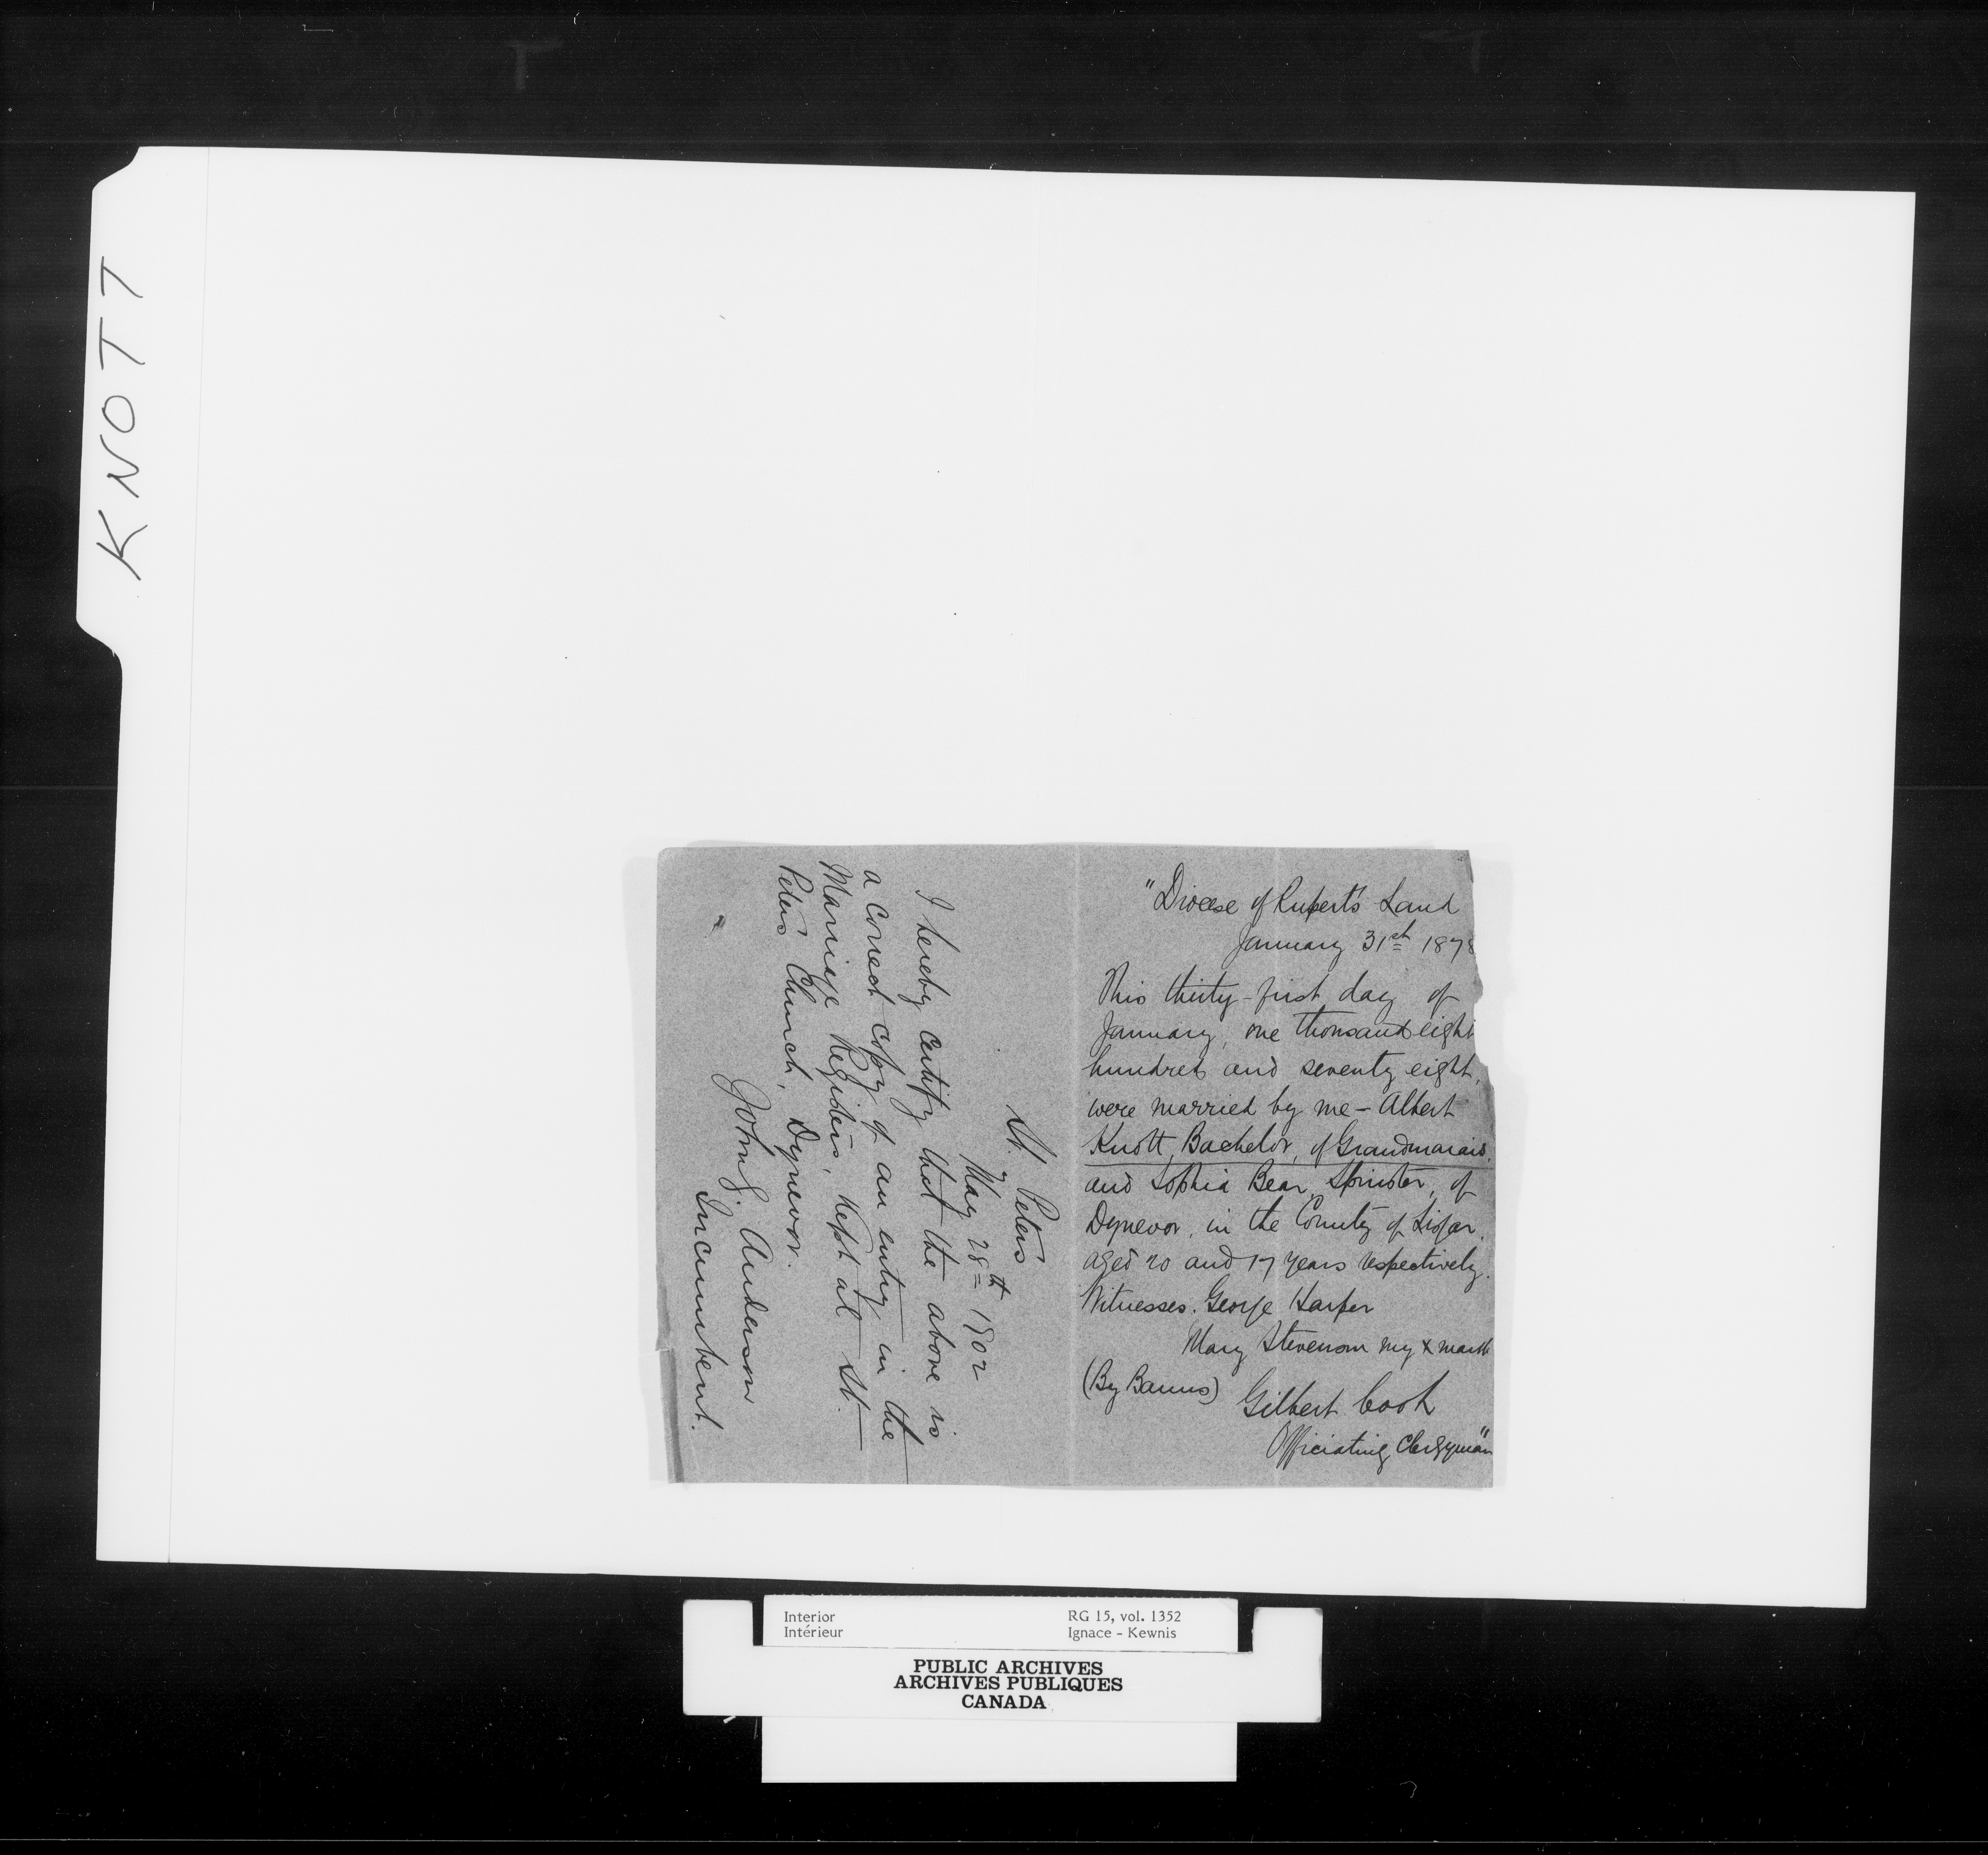 KNOTT
"Diocese of Rupert's Land
January 31st 1878
This thirty-first day of
January, one thousand eight
hundred and seventy eight,
were married by me - Albert
Knott, Bachelor, of Grandmarais.
and Sophia Bear, Spinster, of
Dynevor, in the County of Lisgar.
aged 20 and 17 years respectively.
Witnesses. George Harper
Mary Stevenson my x mark
(By Banns)
Gilbert Cook
Officiating Clergyman"
St. Peters
May 28th 1902
I hereby certify that the above is
a correct copy of an entry in the
Marriage Registers, kept at St.
Peters Church, Dynevor.
John G. Anderson
Incumbent.
Interior RG 15, vol. 1352
Intérieur Ignace - Kewnis
PUBLIC ARCHIVES
ARCHIVES PUBLIQUES
CANADA